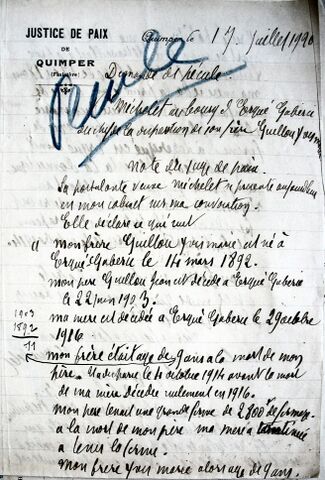 JUSTICE DE PAIX
DE
QUIMPER
(Finistère)
Quimper, le 17 juillet 1920
Demande de pécule
Michelet au bourg d'Ergué Gaberic
de son frère Guillou
Note du juge de paix.
La postulante veuve Michelet se présente aujourd'hui
en mon cabinet sur ma convocation.
Elle déclare ce qui suit
" mon frère Guillou Yves marie est né à
Ergué Gaberic le 14 mars 1892.
mon père Guillou Jean est décédé à Ergué Gaberic
le 22 juin 1903.
ma mère est décédée à Ergué Gaberic le 29 octobre
1916
1903
1892
11
mon frère était agé de 9 ans a la mort de mon
père. Il a disparu le 4 octobre 1914 avant la mort
de ma mère décédée seulement en 1916.
mon père tenait une grande ferme de 2800 f de fermage
a la mort de mon père ma mère a continué
a tenir la ferme.
mon frère Yves marie alors agé de 9 ans.